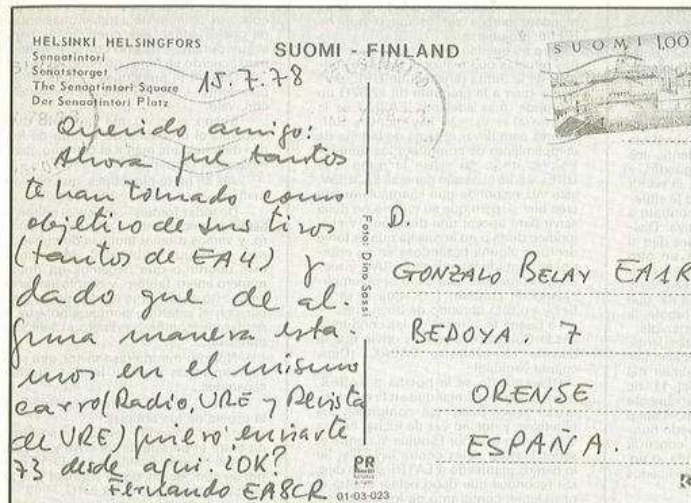 HELSINKI HELSINGFORS
Senaatintori
Senatstorget
The Senaatintori Square
Der Senaatintori Platz
SUOMI - FINLAND
SUOMI 1,00
15.7.78
Querido amigo:
Ahora que tantos
te han tomado como
objetivo de sus tiros
(tantos de EA4) y
dado que de al-
guna manera esta-
mos en el mismo
carro (Radio, URE y Revista
de URE) quiero enviarte
73 desde aquí. ¿OK?
Fernando EA8CR
Foto: Dino Sassi
PR
01-03-023
D.
GONZALO BELAY EA1R
BEDOYA. 7
ORENSE
ESPAÑA.